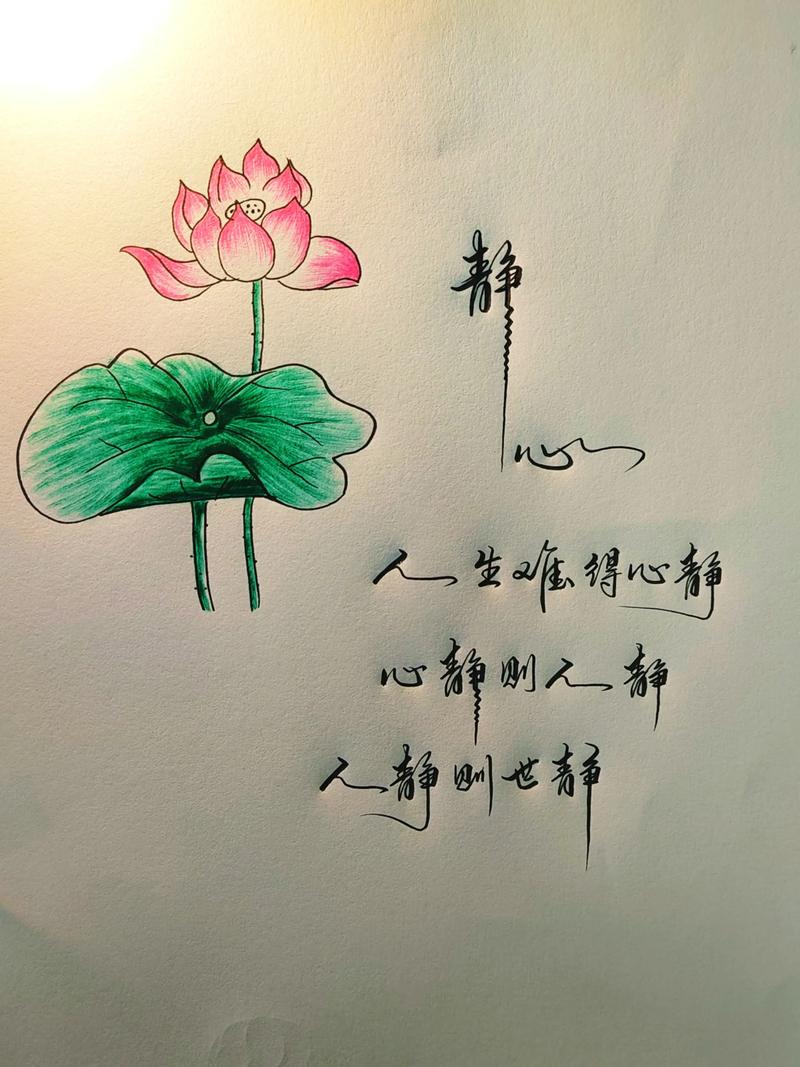 静
心
人生难得心静
心静则人静
人静则世静